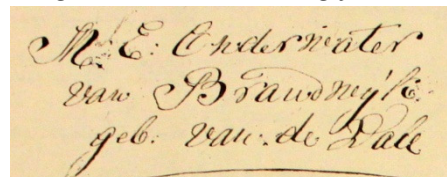 M. E. Onderwater
van Brandwyk.
geb. van de Pall